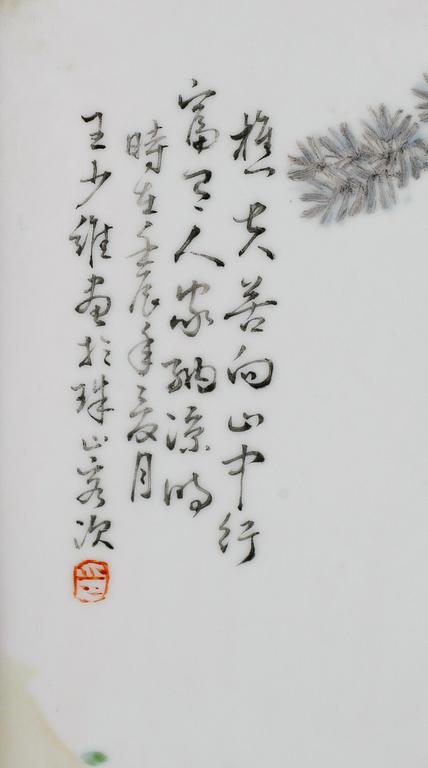 樵夫苦向山中行
富人家納涼時
時在壬辰年夏月
王少維畫於珠山客次